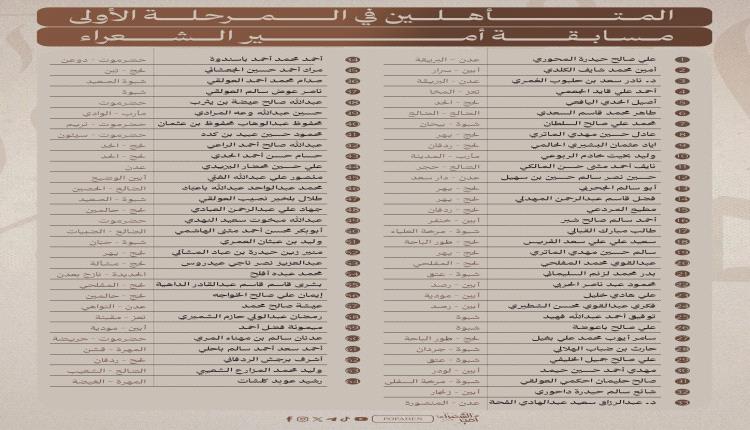 المتأهلين في المرحلة الأولى
مسابقة أمير الشعراء
1 علي صالح حيدرة المحوري عدن - البريقة
2 أمين محمد شايف الكلدي أبين - سرار
3 د. نادر سعد بن حلبوب العمري عدن - البريقة
4 أحمد علي قايد الجحمي تعز - المخا
5 أصيل الحدي اليافعي لحج - الحد
6 طاهر محمد قاسم السعدي الضالع - الضالع
7 محمد علي صالح السلطان شبوة - بيحان
8 عادل حسين مهدي الماتري لحج - يهر
9 اياد عثمان البشيري الحالمي لحج - ردفان
10 وليد بخيت خادم الربوعي مأرب - المدينة
11 نايف أحمد مثنى حسن المالكي الضالع - حجر
12 حسين نصر سالم حسين بن سهيل عدن - دار سعد
13 أبو سالم الجحربي لحج - يهر
14 فضل قاسم عبدالرحمن المهدلي لحج - يهر
15 مطيع المردعي لحج - ردفان
16 أحمد سالم صالح شبر أبين - خنفر
17 طالب مبارك القباني شبوة - مرخة العلياء
18 سعيد علي علي سعد الفريس لحج - طور الباحة
19 سالم حسين مهدي الماتري لحج - يهر
20 عبدالقوي محمد المفلحي لحج - المفلحي
21 بدر محمد لزنم السليماني شبوة - عتق
22 محمود عبد ناصر الحربي أبين - رصد
23 علي هادي خليل أبين - مودية
24 فكري عبدالقوي محسن الشطيري أبين - رصد
25 توفيق أحمد عبدالله فهيد شبوة
26 علي صالح باعوضة شبوة
27 سامر أيوب محمد علي بغيل لحج - طور الباحة
28 حارث بن ضباب الهلالي شبوة - جردان
29 علي صالح جميل الخليفي شبوة - عتق
30 مهدي أحمد حسين حيمد أبين - لودر
31 صالح حليمان احكمي العولقي شبوة - مرخة السفلى
32 شائع سالم حيدرة داحوري أبين - زنجبار
33 د. عبدالرزاق سعيد عبدالهادي الفحة عدن - المنصورة
34 أحمد محمد أحمد باسندوة حضرموت - دوعن
35 مراد أحمد حسين الجعشاني لحج - تبن
36 صدام محمد أحمد العولقي شبوة الصعيد
37 ناصر عوض سالم العولقي شبوة
38 عبدالله صالح عيضة بن يثرب حضرموت
39 حسين عبدالله وعه المرادي مأرب - الوادي
40 محفوظ عبدالوهاب محفوظ بن عثمان حضرموت - تريم
41 محمود حسين عبيد بن كده حضرموت - سيئون
42 عبدالله صالح أحمد الراعي لحج - الحد
43 حسام حسن أحمد الحدي لحج - الحد
44 علي حسين مختار اليزيدي عدن
45 منصور علي عبدالله الفني أبين الوضيع
46 محمد عبدالواحد عبدالله باعباد الضالع - الحصين
47 طلال بلخير نصيب العولقي شبوة - الصعيد
48 جهاد علي عبدالرحمن العبادي لحج - حالمين
49 عبدالله مبخوت سعيد النهدي حضرموت
50 أبوبكر محسن أحمد مثنى الهاشمي الضالع - الضبيات
51 وليد بن عبثان العمري شبوة - حبان
52 منير زين حيدرة بن عباد المشألي لحج - يهر
53 عبدالعزيز نصر ناجي عيدروس لحج - مشألة
54 محمد عبده أفلح الحديدة - نازح بعدن
55 بشرى قاسم قاسم عبدالقادر الداهية لحج - المفلحي
56 إيمان علي صالح الخواجه لحج - حالمين
57 عيشة صالح محمد عدن - التواهي
58 رمضان عبدالولي حازم الشميري تعز - مقبنة
59 ميمونة فضل أحمد أبين - مودية
60 عدنان سالم بن مهناء المري حضرموت - حريضة
61 أحمد سعد أحمد سالم باحلي المهرة - قشن
62 أشرف برجش الردفاني لحج - ردفان
63 وليد محمد المزارع الشعيبي الضالع - الشعيب
64 رشيد عويد كلشات المهرة - الغيضة
POPADEN